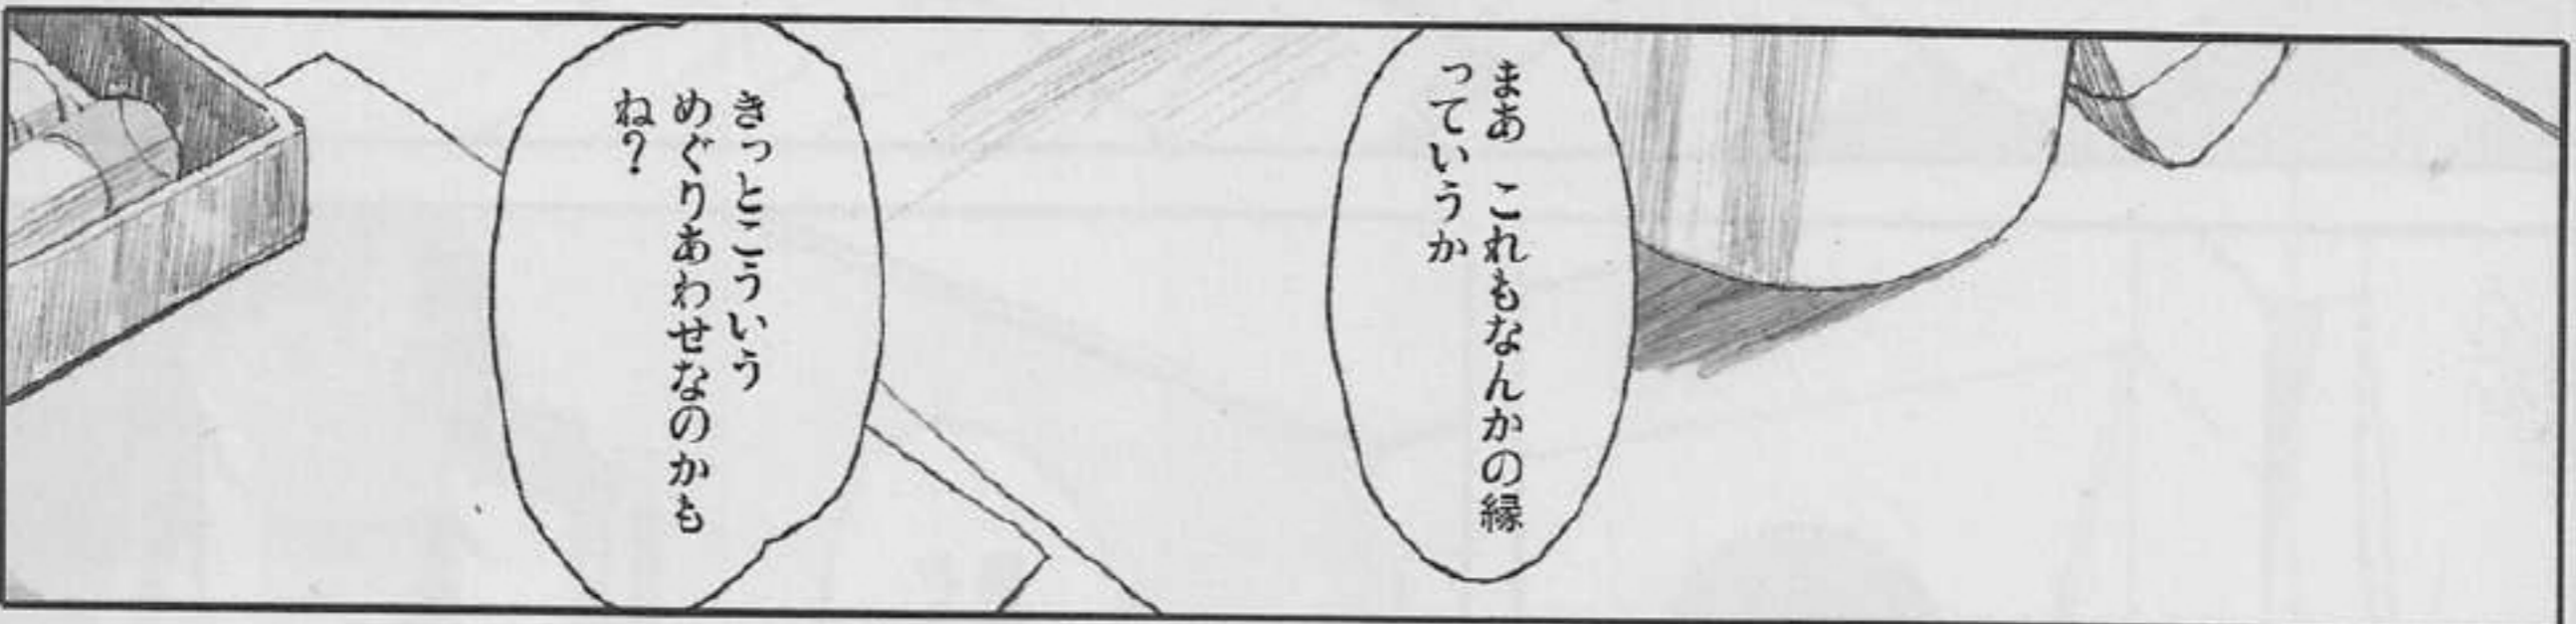 まあ　これもなんかの縁
っていうか
きっとこういう
めぐりあわせなのかも
ね？